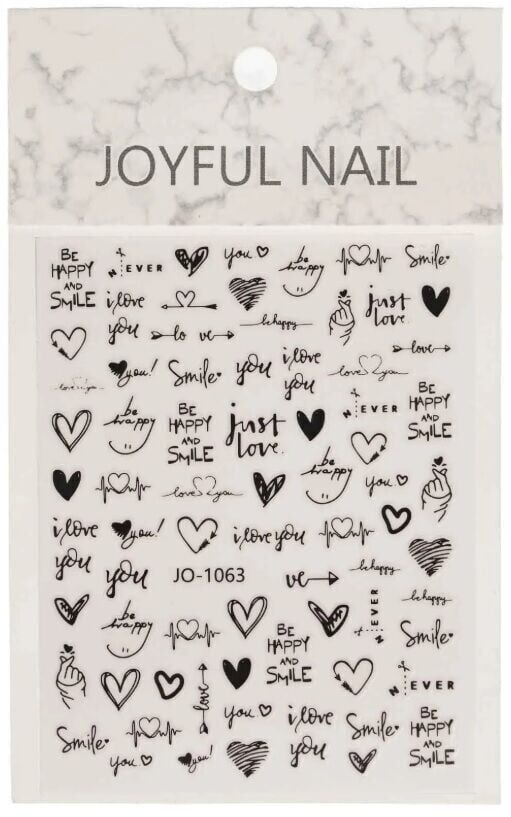 JOYFUL NAIL
BE
HAPPY
AND
SMiLE
NEVER
you
be
happy
Smile
i love
you
just
love.
lo ve
be happy
love
love you
you!
Smile
you
i love
you
love you
BE
HAPPY
AND
SMiLE
NEVER
be
happy
BE
HAPPY
AND
SMiLE
just
love.
be
happy
you
love you
i love
you
you!
i love you
you
JO-1063
ve
be happy
be happy
NEVER
be
happy
BE
HAPPY
AND
SMiLE
Smile
love
NEVER
you
i love
you
Smile
BE
HAPPY
AND
SMiLE
Smile
you
you!